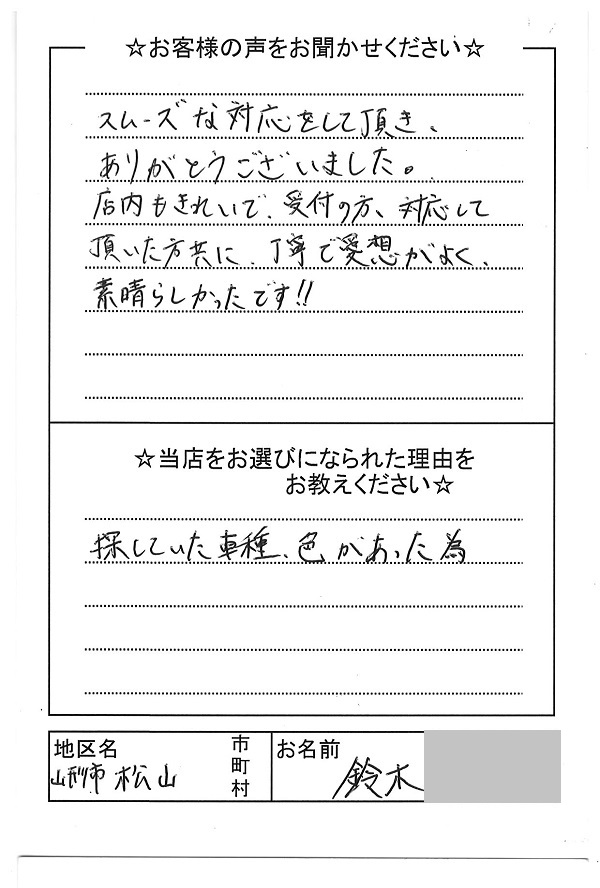 ☆お客様の声をお聞かせください☆
スムーズな対応をして頂き、
ありがとうございました。
店内もきれいで、受付の方、対応して
頂いた方共に、丁寧で愛想がよく、
素晴らしかったです!!
☆当店をお選びになられた理由を
お教えください☆
探していた車種、色があった為
地区名
山形市 松山
市
町
村
お名前
鈴木